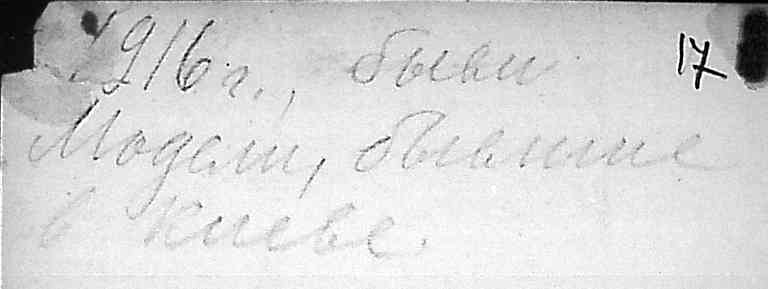 1916 г., были 17
Модели, бывшие
в Киеве.